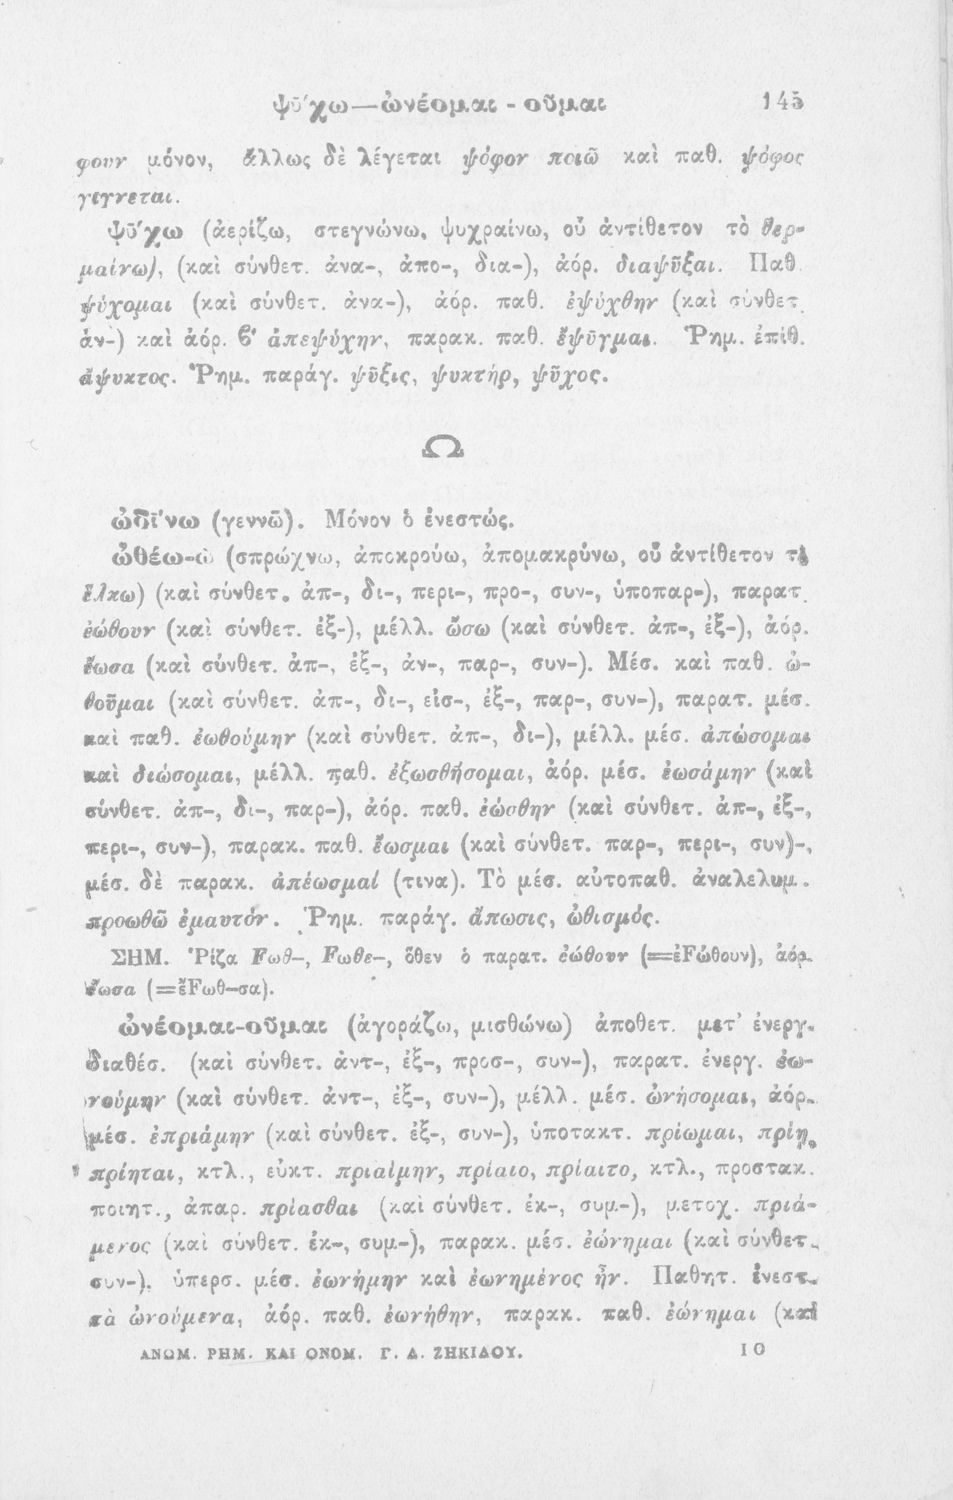 ψῡ́χω—ὠνέομαι - οῦμαι 145
φουν μόνον, ἄλλως δὲ λέγεται ψόφον ποιῶ καὶ παθ. ψόφος
γίγνεται.
ψῡ́χω (ἀερίζω, στεγνώνω, ψυχραίνω, οὗ ἀντίθετον τὸ θερ-
μαίνω), (καὶ σύνθετ. ἀνα-, ἀπο-, δια-), ἀόρ. διαψῦξαι. Παθ.
ψύχομαι (καὶ σύνθετ. ἀνα-), ἀόρ. παθ. ἐψύχθην (καὶ σύνθετ.
ἀν-) καὶ ἀόρ. β′ ἀπεψύχην, παρακ. παθ. ἔψῡγμαι. Ῥημ. ἐπίθ.
ἄψυκτος. Ῥημ. παράγ. ψῦξις, ψυκτήρ, ψῦχος.
Ω
ὠδῑ́νω (γεννῶ). Μόνον ὁ ἐνεστώς.
ὠθέω-ῶ (σπρώχνω, ἀποκρούω, ἀπομακρύνω, οὗ ἀντίθετον τὸ
ἕλκω) (καὶ σύνθετ. ἀπ-, δι-, περι-, προ-, συν-, ὑποπαρ-), παρατ.
ἐώθουν (καὶ σύνθετ. ἐξ-), μέλλ. ὤσω (καὶ σύνθετ. ἀπ-, ἐξ-), ἀόρ.
ἔωσα (καὶ σύνθετ. ἀπ-, ἐξ-, ἀν-, παρ-, συν-). Μέσ. καὶ παθ. ὠ-
θοῦμαι (καὶ σύνθετ. ἀπ-, δι-, εἰσ-, ἐξ-, παρ-, συν-), παρατ. μέσ.
καὶ παθ. ἐωθούμην (καὶ σύνθετ. ἀπ-, δι-), μέλλ. μέσ. ἀπώσομαι
καὶ διώσομαι, μέλλ. παθ. ἐξωσθήσομαι, ἀόρ. μέσ. ἐωσάμην (καὶ
σύνθετ. ἀπ-, δι-, παρ-), ἀόρ. παθ. ἐώσθην (καὶ σύνθετ. ἀπ-, ἐξ-,
περι-, συν-), παρακ. παθ. ἔωσμαι (καὶ σύνθετ. παρ-, περι-, συν)-,
μέσ. δὲ παρακ. ἀπέωσμαί (τινα). Τὸ μέσ. αὐτοπαθ. ἀναλελυμ.
προωθῶ ἐμαυτόν. Ῥημ. παράγ. ἄπωσις, ὠθισμός.
ΣΗΜ. Ῥίζα Fωθ-, Fωθε-, ὅθεν ὁ παρατ. ἐώθουν (=ἐFώθουν), ἀόρ.
ἔωσα (=ἔFωθ-σα).
ὠνέομαι-οῦμαι (ἀγοράζω, μισθώνω) ἀποθετ. μετ' ἐνεργ.
διαθέσ. (καὶ σύνθετ. ἀντ-, ἐξ-, προσ-, συν-), παρατ. ἐνεργ. ἐω-
νούμην (καὶ σύνθετ. ἀντ-, ἐξ-, συν-), μέλλ. μέσ. ὠνήσομαι, ἀόρ.
μέσ. ἐπριάμην (καὶ σύνθετ. ἐξ-, συν-), ὑποτακτ. πρίωμαι, πρίῃ,
πρίηται, κτλ., εὐκτ. πριαίμην, πρίαιο, πρίαιτο, κτλ., προστακ.
ποιητ., ἀπαρ. πρίασθαι (καὶ σύνθετ. ἐκ-, συμ-), μετοχ. πριά-
μενος (καὶ σύνθετ. ἐκ-, συμ-), παρακ. μέσ. ἐώνημαι (καὶ σύνθετ.
συν-), ὑπερσ. μέσ. ἐωνήμην καὶ ἐωνημένος ἦν. Παθητ. ἐνεστ.
τὰ ὠνούμενα, ἀόρ. παθ. ἐωνήθην, παρακ. παθ. ἐώνημαι (καὶ
ΑΝΩΜ. ΡΗΜ. ΚΑΙ ΟΝΟΜ. Γ. Δ. ΖΗΚΙΔΟΥ. 10